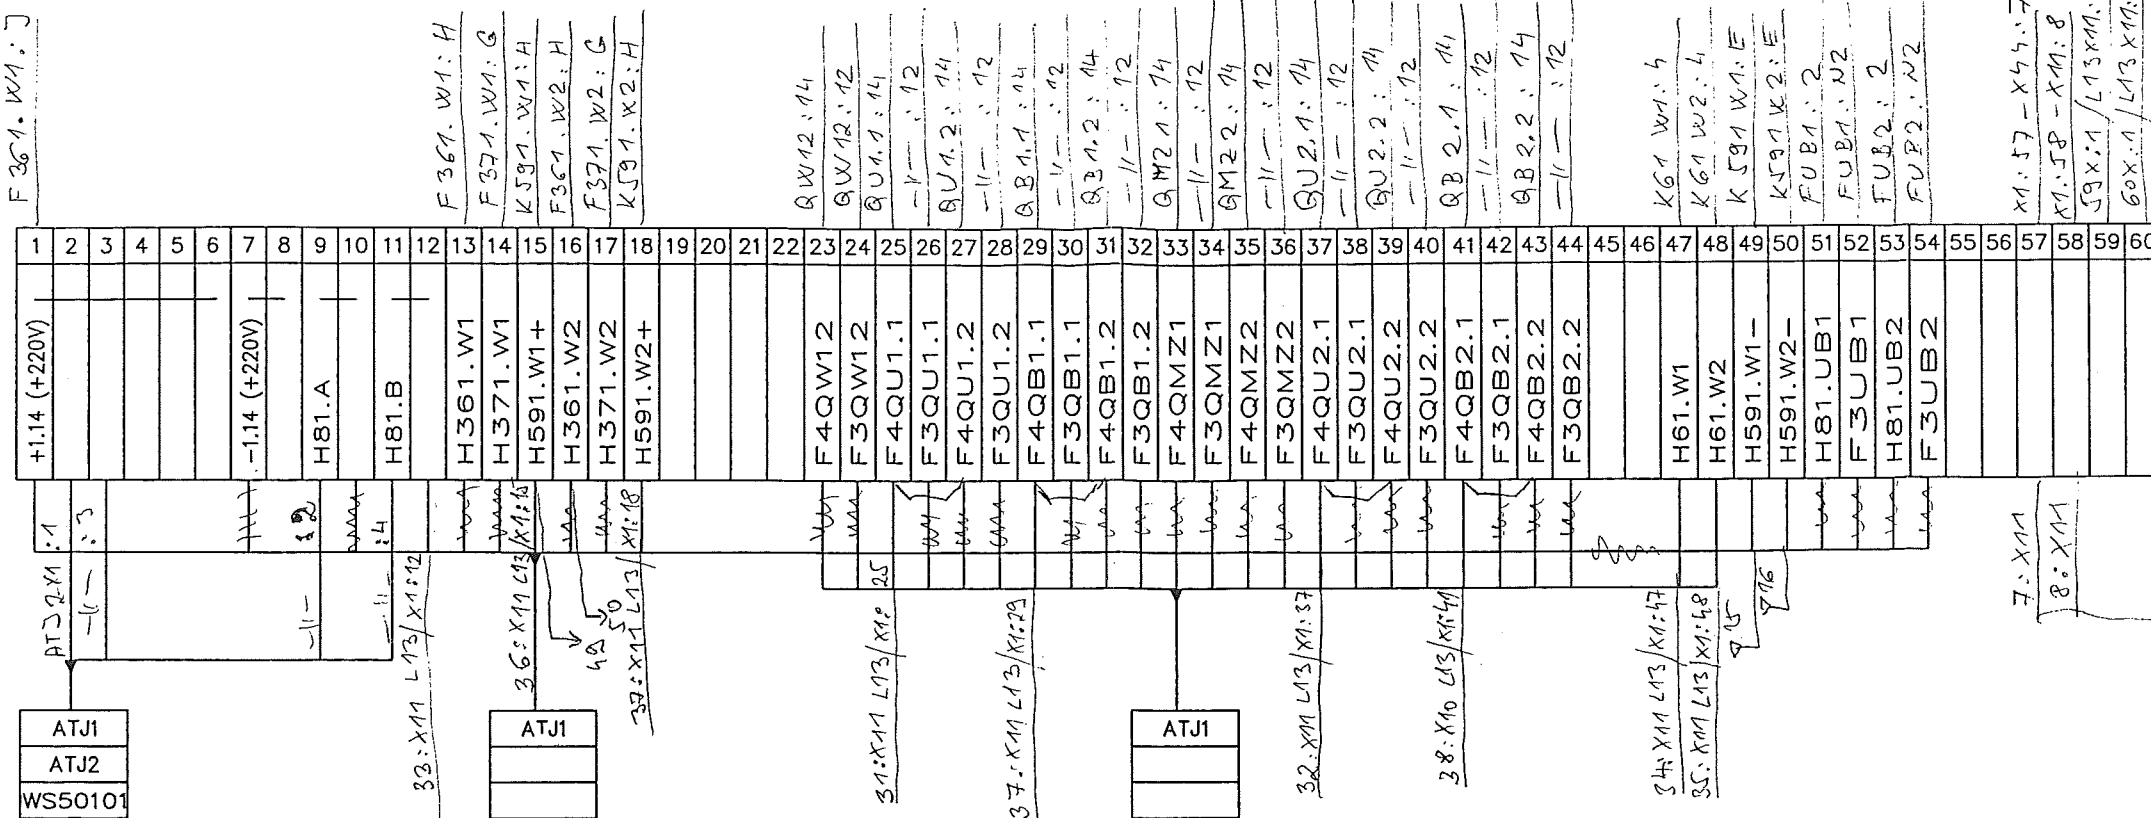 F361.W1:J
F361.W1:H
F371.W1:G
K591.W1:H
F361.W2:H
F371.W2:G
K591.W2:H
QW12:14
QW12:12
QU1.1:14
-11-:12
QU1.2:14
-11-:12
QB1.1:14
-11-:12
QB1.2:14
-11-:12
QMZ1:14
-11-:12
QMZ2:14
-11-:12
QU2.1:14
-11-:12
QU2.2:14
-11-:12
QB2.1:14
-11-:12
QB2.2:14
-11-:12
K61 W1:4
K61 W2:4
K591 W1:E
K591 W2:E
FUB1:2
FUB1:N2
FUB2:2
FUB2:N2
X1:57-X4:7
X1:58-X11:8
59X:1/L13X11:
60X:1/L13X11:
1 2 3 4 5 6 7 8 9 10 11 12 13 14 15 16 17 18 19 20 21 22 23 24 25 26 27 28 29 30 31 32 33 34 35 36 37 38 39 40 41 42 43 44 45 46 47 48 49 50 51 52 53 54 55 56 57 58 59 60
+1.14 (+220V)
-1.14 (+220V)
H81.A
H81.B
H361.W1
H371.W1
H591.W1+
H361.W2
H371.W2
H591.W2+
F4QW12
F3QW12
F4QU1.1
F3QU1.1
F4QU1.2
F3QU1.2
F4QB1.1
F3QB1.1
F4QB1.2
F3QB1.2
F4QMZ1
F3QMZ1
F4QMZ2
F3QMZ2
F4QU2.1
F3QU2.1
F4QU2.2
F3QU2.2
F4QB2.1
F3QB2.1
F4QB2.2
F3QB2.2
H61.W1
H61.W2
H591.W1-
H591.W2-
H81.UB1
F3UB1
H81.UB2
F3UB2
ATJ2X1:1
-11-:3
-11- :2
-11- :4
33:X11 L13/X1:12
36:X11 L13/X1:15
49
50
37:X11 L13/X1:18
31:X11 L13/X1: 25
37:X11 L13/X1:29
32:X11 L13/X1:37
38:X10 L13/X1:41
34:X11 L13/X1:47
35:X11 L13/X1:48
15
16
7:X11
8:X11
ATJ1
ATJ2
WS50101
ATJ1
ATJ1